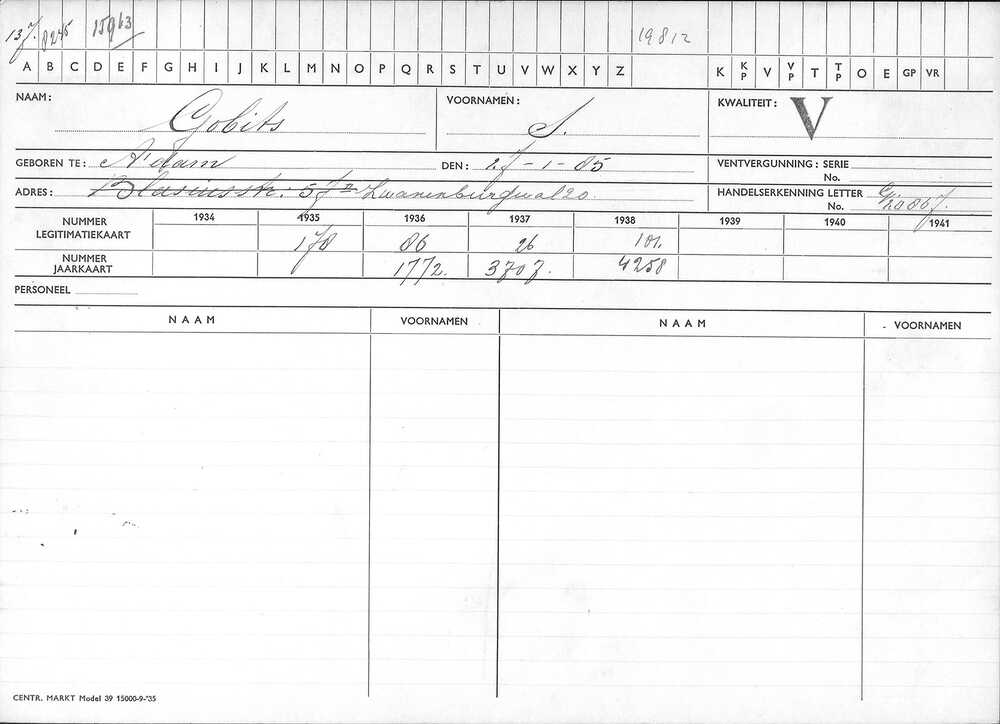 137. 8245 15963 19812
A B C D E F G H I J K L M N O P Q R S T U V W X Y Z K K P V V P T T P O E GP VR
NAAM: Gobits VOORNAMEN: S. KWALITEIT: V
GEBOREN TE: A'dam DEN: 27-1-85 VENTVERGUNNING: SERIE
No.
ADRES: Blasiusstr. 57 II Zwanenburgwal 20. HANDELSERKENNING LETTER
No. 20867.
NUMMER LEGITIMATIEKAART 1934 1935 1936 1937 1938 1939 1940 1941
178 86 26 101.
NUMMER JAARKAART 1772. 3707. 4258
PERSONEEL
NAAM VOORNAMEN NAAM VOORNAMEN
CENTR. MARKT Model 39 15000-9-'35